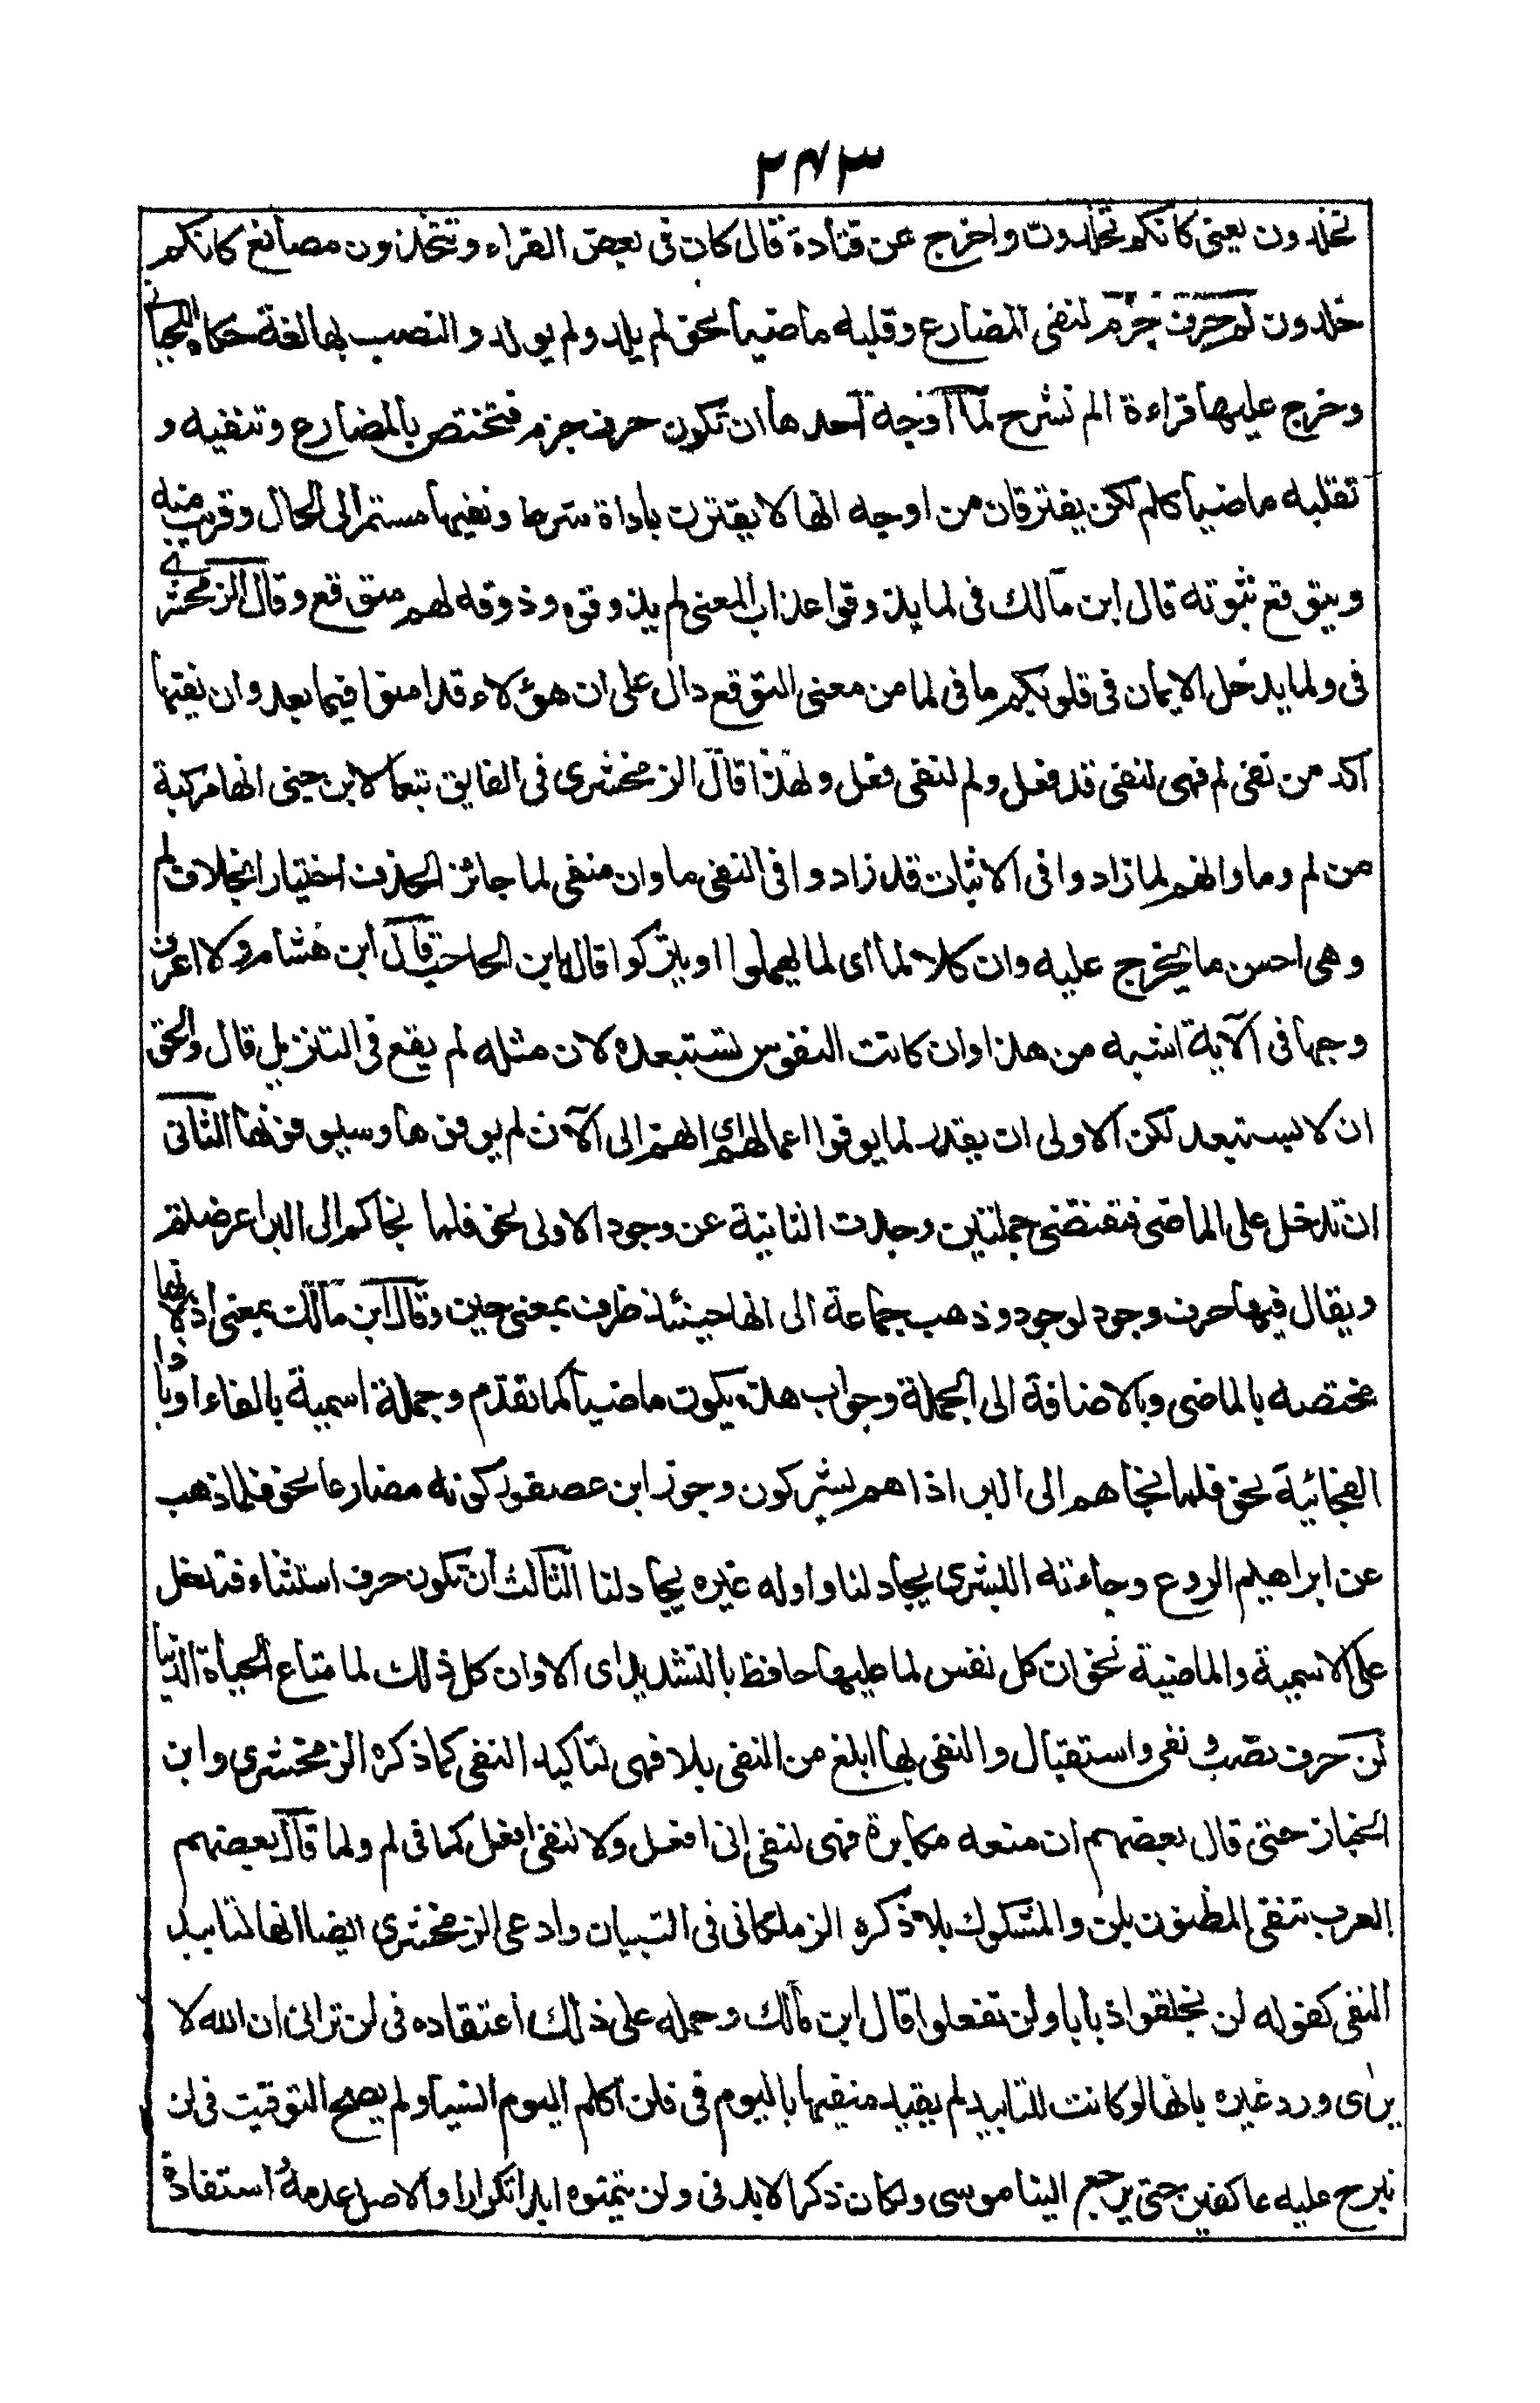 ٢٤٣
تخلدون يعنى كانكم تخلدون واخرج عن قتادة قال كان فى بعض القراءة وتتخذون مصانع كانكم
خلدون لم حرف جزم لنفى المضارع وقلبه ماضيا نحو لم يلد ولم يولد والنصب بها لغة حكاه اللحيانى
وخرج عليها قراءة الم نشرح لما اوجه احدها ان تكون حرف جزم فتختص بالمضارع وتنفيه و
تقلبه ماضيا كلم لكن يفترقان من اوجه انها لا يقترن باداة شرط ونفيها مستمر الى الحال وقريب منه
ويتوقع ثبوته قال ابن مالك فى لما يذوقوا عذاب المعنى لم يذوقوه وذوقه لهم متوقع وقال الزمخشرى
فى ولما يدخل الايمان فى قلوبكم ما فى لما من معنى التوقع دال على ان هؤلاء قد امنوا فيما بعد وان نفيها
اكد من نفى لم فهى لنفى قد فعل ولم لنفى فعل ولهذا قال الزمخشرى فى الفايق تبعا لابن جنى انها مركبة
من لم وما وانهم لما زادوا فى الاثبات قد زادوا فى النفى ما وان منفى لما جائز الحذف اختيارا بخلاف لم
وهى احسن ما يخرج عليه وان كلا لما اى لما يهملوا او يتركوا قاله ابن الحاجب قال ابن هشام ولا اعرف
وجها فى الآية اشبه من هذا وان كانت النفوس تستبعده لان مثله لم يقع فى التنزيل قال والحق
ان لا يستبعد لكن الاولى ان يقدر لما يوفوا اعمالهم اى انهم الى الآن لم يوفوها وسيوفونها الثانى
ان تدخل على الماضى فتقتضى جملتين وجدت الثانية عن وجود الاولى نحو فلما نجاكم الى البر اعرضتم
ويقال فيها حرف وجود لوجود وذهب جماعة الى انها حينئذ ظرف بمعنى حين وقال ابن مالك بمعنى اذ لانها
مختصه بالماضى وبالاضافة الى الجملة وجواب هذه يكون ماضيا كما تقدم وجملة اسمية بالفاء او باذا
الفجائية نحو فلما نجاهم الى البر اذا هم يشركون وجوز ابن عصفور كونه مضارعا نحو فلما ذهب
عن ابراهيم الروع وجاءته البشرى يجادلنا واوله غيره بجادلنا الثالث ان تكون حرف استثناء فتدخل
على الاسمية والماضية نحو ان كل نفس لما عليها حافظ بالتشديد اى الا وان كل ذلك لما متاع الحياة الدنيا
لن حرف نصب ونفى واستقبال والنفى بها ابلغ من النفى بلا فهى لتاكيد النفى كما ذكره الزمخشرى وابن
الخباز حتى قال بعضهم ان منعه مكابرة فهى لنفى انى افعل ولا لنفى افعل كما فى لم ولما قال بعضهم
العرب تنفى المظنون بلن والمشكوك بلا ذكره الزملكانى فى التبيان وادعى الزمخشرى ايضا انها لتابيد
النفى كقوله لن يخلقوا ذبابا ولن تفعلوا قال ابن مالك وحمله على ذلك اعتقاده فى لن ترانى ان الله لا
يرى ورد غيره بانها لو كانت للتابيد لم يقيد منفيها باليوم فى فلن اكلم اليوم انسيا ولم يصح التوقيت فى لن
نبرح عليه عاكفين حتى يرجع الينا موسى ولكان ذكر الابد فى ولن يتمنوه ابدا تكرارا والاصل عدمه واستفادة